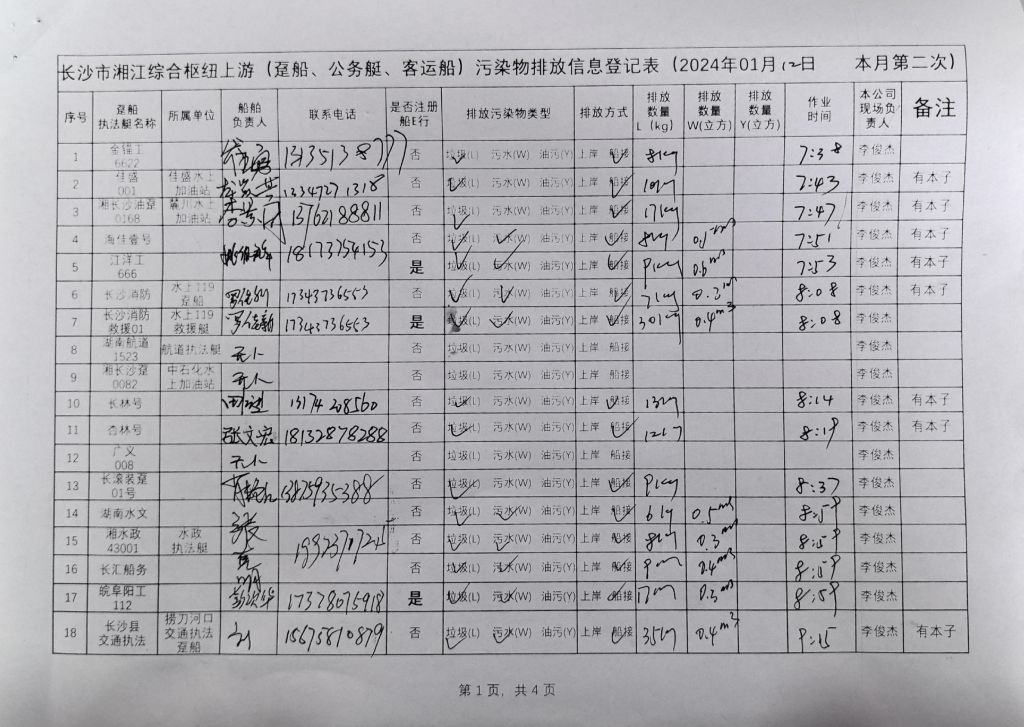 长沙市湘江综合枢纽上游（趸船、公务艇、客运船）污染物排放信息登记表（2024年01月12日 本月第二次）
序号 趸船执法艇名称 所属单位 船舶负责人 联系电话 是否注册船E行 排放污染物类型 排放方式 排放数量L（kg） 排放数量W(立方) 排放数量Y(立方) 作业时间 本公司现场负责人 备注
1 金锚工6622 否 垃圾(L) 污水(W) 油污(Y) 上岸 船接 8kg 7:38 李俊杰
2 佳盛001 佳盛水上加油站 否 垃圾(L) 污水(W) 油污(Y) 上岸 船接 10kg 7:43 李俊杰 有本子
3 湘长沙油趸0168 麓川水上加油站 13762188811 否 垃圾(L) 污水(W) 油污(Y) 上岸 船接 17kg 7:47 李俊杰 有本子
4 海佳壹号 18173754153 否 垃圾(L) 污水(W) 油污(Y) 上岸 船接 8kg 7:51 李俊杰 有本子
5 江洋工666 是 垃圾(L) 污水(W) 油污(Y) 上岸 船接 9kg 0.6m³ 7:53 李俊杰 有本子
6 长沙消防 水上119趸船 17343736553 否 垃圾(L) 污水(W) 油污(Y) 上岸 船接 7kg 0.3m³ 8:08 李俊杰 有本子
7 长沙消防救援01 水上119救援艇 17343736553 是 垃圾(L) 污水(W) 油污(Y) 上岸 船接 0.4m³ 8:08 李俊杰
8 湖南航道1523 航道执法艇 无人 否 垃圾(L) 污水(W) 油污(Y) 上岸 船接 李俊杰
9 湘长沙趸0082 中石化水上加油站 无人 否 垃圾(L) 污水(W) 油污(Y) 上岸 船接 李俊杰
10 长林号 13174208560 否 垃圾(L) 污水(W) 油污(Y) 上岸 船接 13kg 8:14 李俊杰 有本子
11 杏林号 张文宏 18132878288 否 垃圾(L) 污水(W) 油污(Y) 上岸 船接 12kg 8:19 李俊杰 有本子
12 广义008 无人 否 垃圾(L) 污水(W) 油污(Y) 上岸 船接 李俊杰
13 长滚装趸01号 否 垃圾(L) 污水(W) 油污(Y) 上岸 船接 9kg 8:37 李俊杰
14 湖南水文 否 垃圾(L) 污水(W) 油污(Y) 上岸 船接 6kg 0.5m³ 8:59 李俊杰
15 湘水政43001 水政执法艇 否 垃圾(L) 污水(W) 油污(Y) 上岸 船接 8kg 0.3m³ 8:59 李俊杰
16 长汇船务 否 垃圾(L) 污水(W) 油污(Y) 上岸 船接 9kg 0.4m³ 8:59 李俊杰
17 皖阜阳工112 17378075918 是 垃圾(L) 污水(W) 油污(Y) 上岸 船接 0.3m³ 8:59 李俊杰
18 长沙县交通执法 捞刀河口交通执法趸船 15675810879 否 垃圾(L) 污水(W) 油污(Y) 上岸 船接 35kg 0.4m³ 9:15 李俊杰 有本子
第 1 页，共 4 页